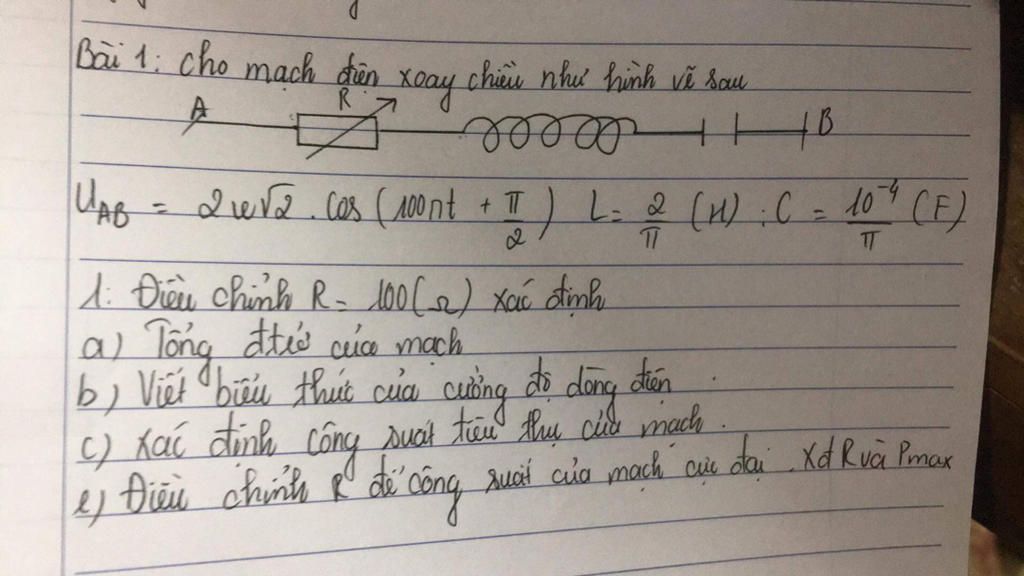 Bài 1: cho mạch điện xoay chiều như hình vẽ sau
A R B
U_AB = 200√2 . cos (100πt + π/2) L = 2/π (H) ; C = 10⁻⁴/π (F)
1: Điều chỉnh R = 100(Ω) xác định
a) Tổng đtrở của mạch
b) Viết biểu thức của cường độ dòng điện
c) Xác định công suất tiêu thụ của mạch.
e) Điều chỉnh R để công suất của mạch cực đại. Xđ R và Pmax